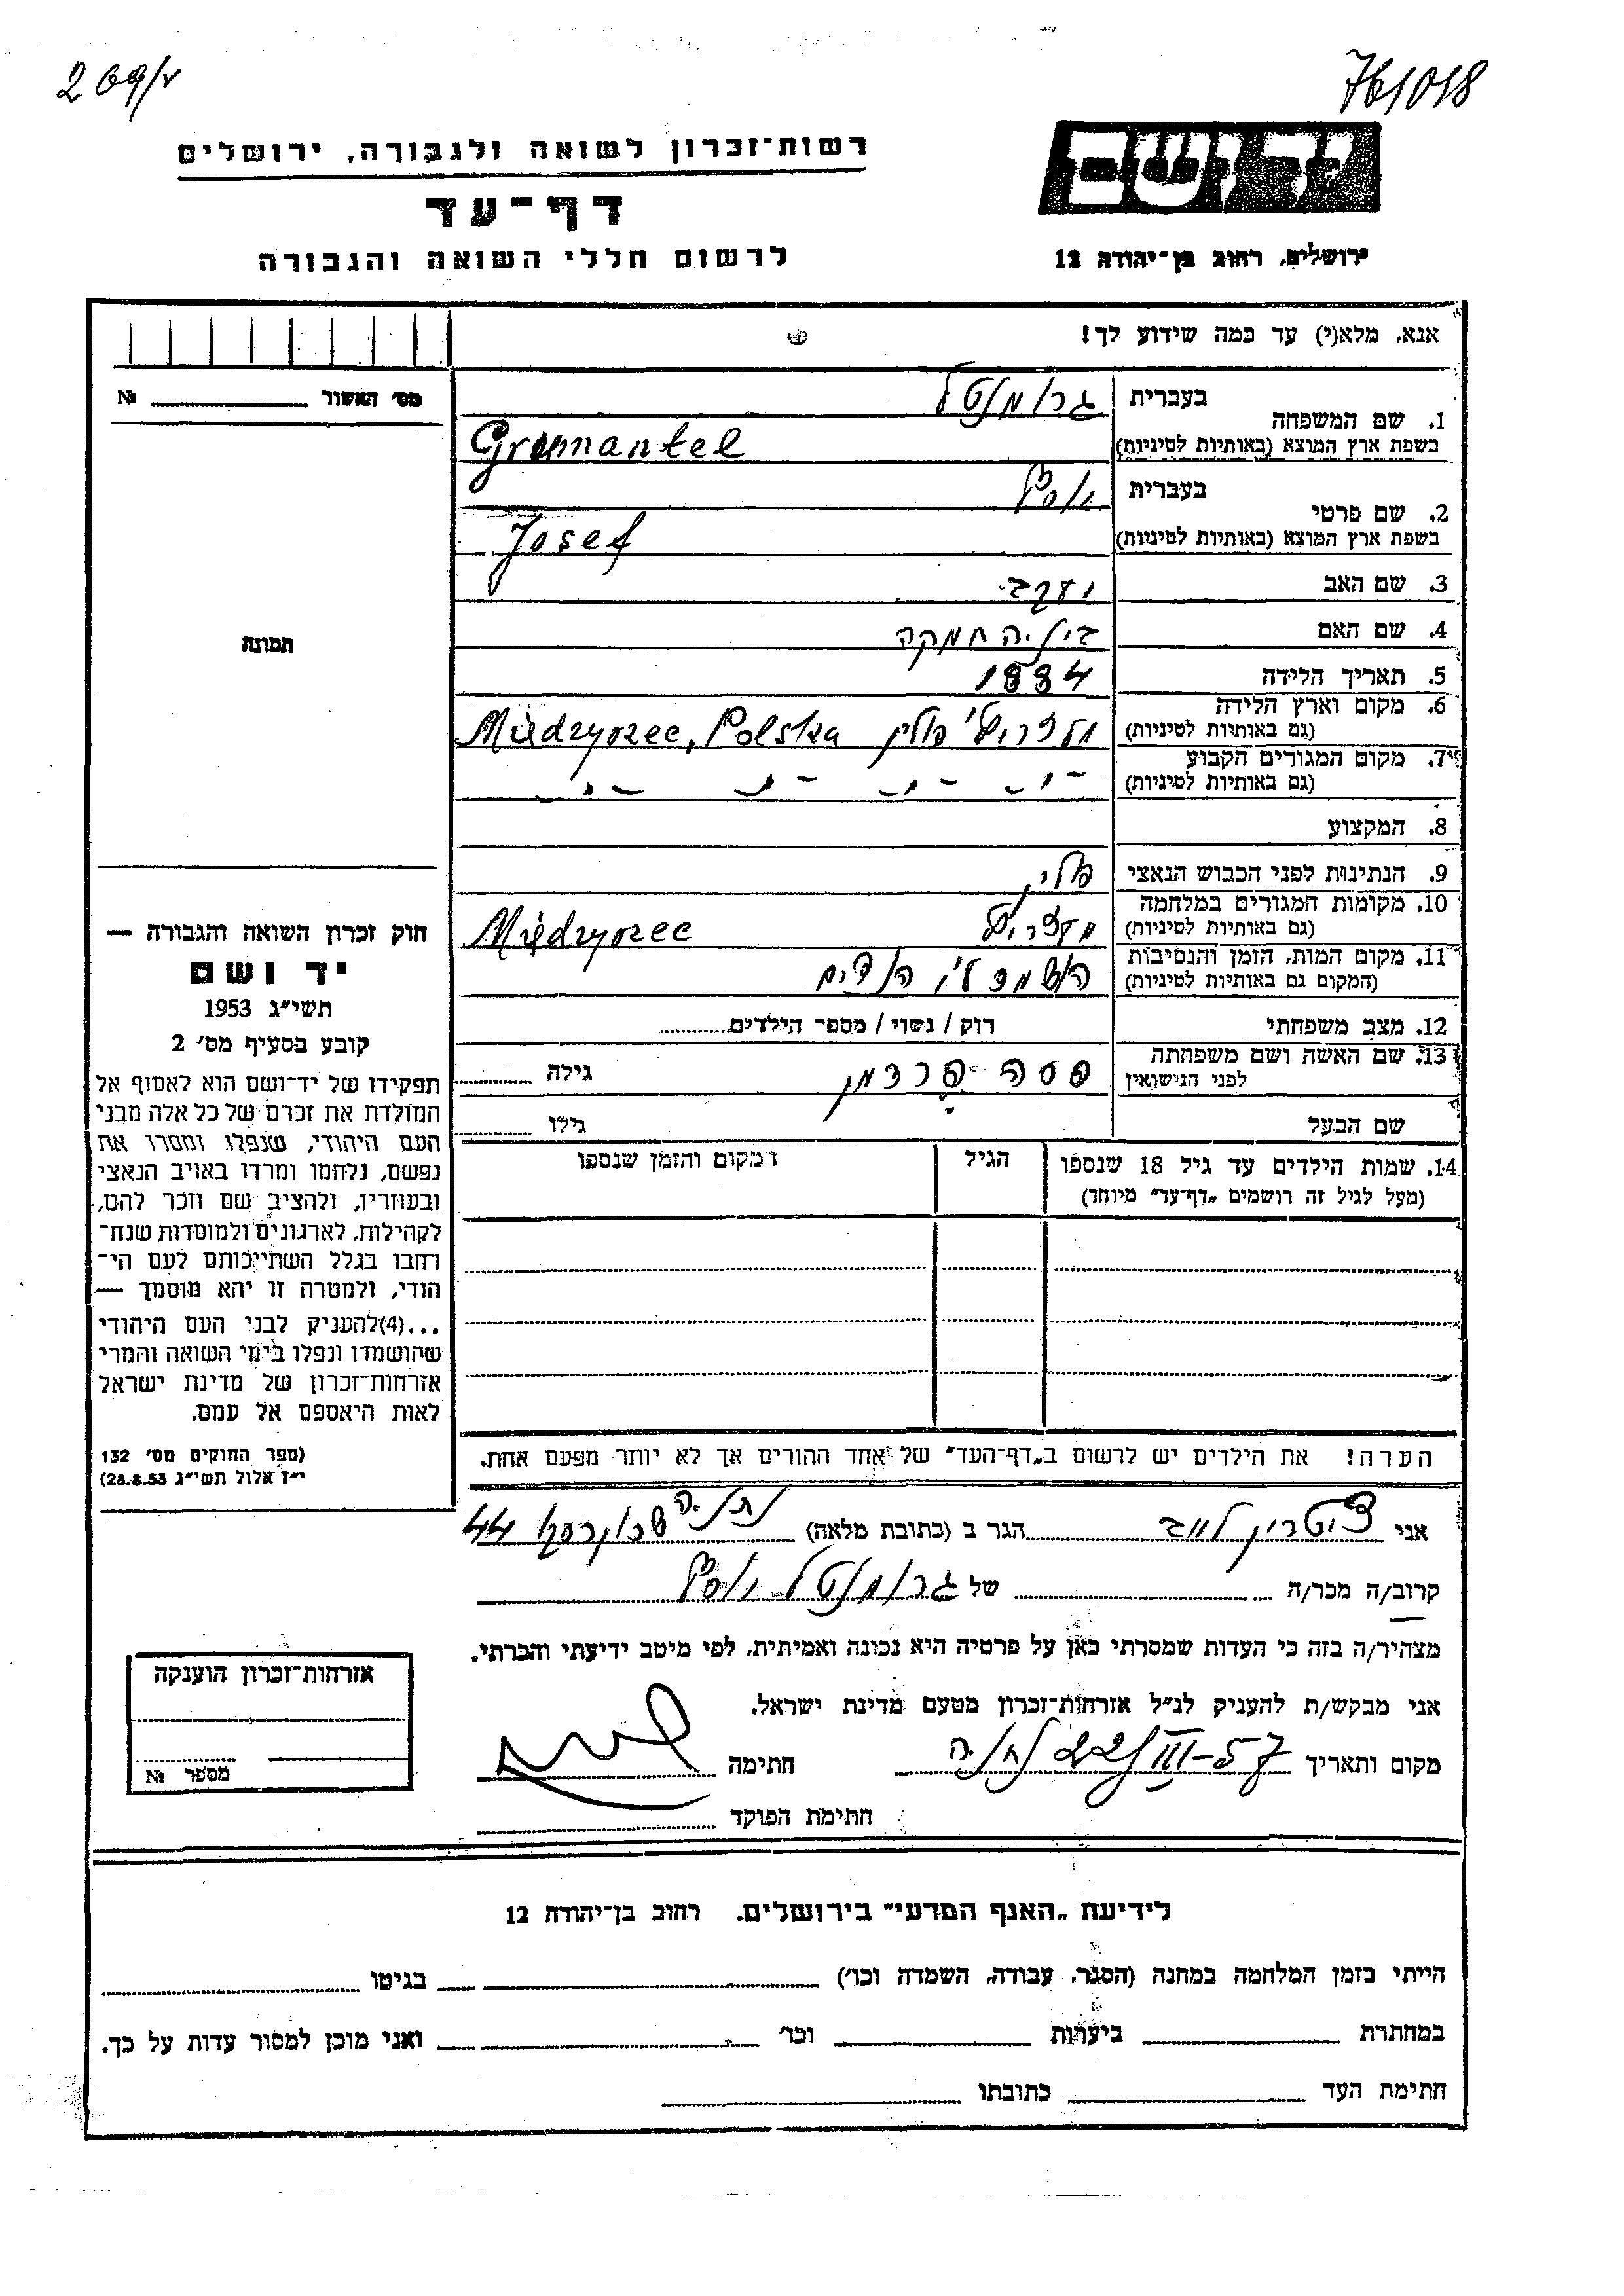 269/ר
761018
יד ושם
רשות־זכרון לשואה ולגבורה, ירושלים
דף־עד
לרשום חללי השואה והגבורה
ירושלים, רחוב בן־יהודה 12
אנא, מלא(י) עד כמה שידוע לך!
מס׳ האשור № 
1. שם המשפחה בעברית גרומנטל
בשפת ארץ המוצא (באותיות לטיניות) Gromantel
2. שם פרטי בעברית יוסף
בשפת ארץ המוצא (באותיות לטיניות) Josef
3. שם האב יעקב
4. שם האם
5. תאריך הלידה 1884
6. מקום וארץ הלידה (גם באותיות לטיניות) פולין Międzyrzec, Polska
7. מקום המגורים הקבוע (גם באותיות לטיניות) - " - " - " - "
8. המקצוע
9. הנתינות לפני הכבוש הנאצי פולין
10. מקומות המגורים במלחמה (גם באותיות לטיניות) Międzyrzec
11. מקום המות, הזמן והנסיבות (המקום גם באותיות לטיניות) הושמד ע״י הנאצים
12. מצב משפחתי רוק / נשוי / מספר הילדים
13. שם האשה ושם משפחתה לפני הנישואין פסה פרדמן גילה
שם הבעל גילו
14. שמות הילדים עד גיל 18 שנספו הגיל המקום והזמן שנספו
(מעל לגיל זה רושמים „דף־עד״ מיוחד)
הערה! את הילדים יש לרשום ב„דף־העד״ של אחד ההורים אך לא יותר מפעם אחת.
תמונה
חוק זכרון השואה והגבורה —
יד ושם
תשי״ג 1953
קובע בסעיף מס׳ 2
תפקידו של יד־ושם הוא לאסוף אל
המולדת את זכרם של כל אלה מבני
העם היהודי, שנפלו ומסרו את
נפשם, נלחמו ומרדו באויב הנאצי
ובעוזריו, ולהציב שם וזכר להם,
לקהילות, לארגונים ולמוסדות שנח־
רבו בגלל השתייכותם לעם הי־
הודי, ולמטרה זו יהא מוסמך —
...(4)להעניק לבני העם היהודי
שהושמדו ונפלו בימי השואה והמרי
אזרחות־זכרון של מדינת ישראל
לאות היאספם אל עמם.
(ספר החוקים מס׳ 132
י״ז אלול תשי״ג 28.8.53)
אני ציטרין לייב הגר ב (כתובת מלאה) נתניה 44
קרוב/ה מכר/ה של גרומנטל יוסף
מצהיר/ה בזה כי העדות שמסרתי כאן על פרטיה היא נכונה ואמיתית, לפי מיטב ידיעתי והכרתי.
אני מבקש/ת להעניק לנ״ל אזרחות־זכרון מטעם מדינת ישראל.
מקום ותאריך נתניה 22/III-57 חתימה
חתימת הפוקד
אזרחות־זכרון הוענקה
מספר №
לידיעת „האגף המדעי״ בירושלים. רחוב בן־יהודה 12
הייתי בזמן המלחמה במחנה (הסגר, עבודה, השמדה וכו׳) בגיטו
במחתרת ביערות וכו׳ ואני מוכן למסור עדות על כך.
חתימת העד כתובתו